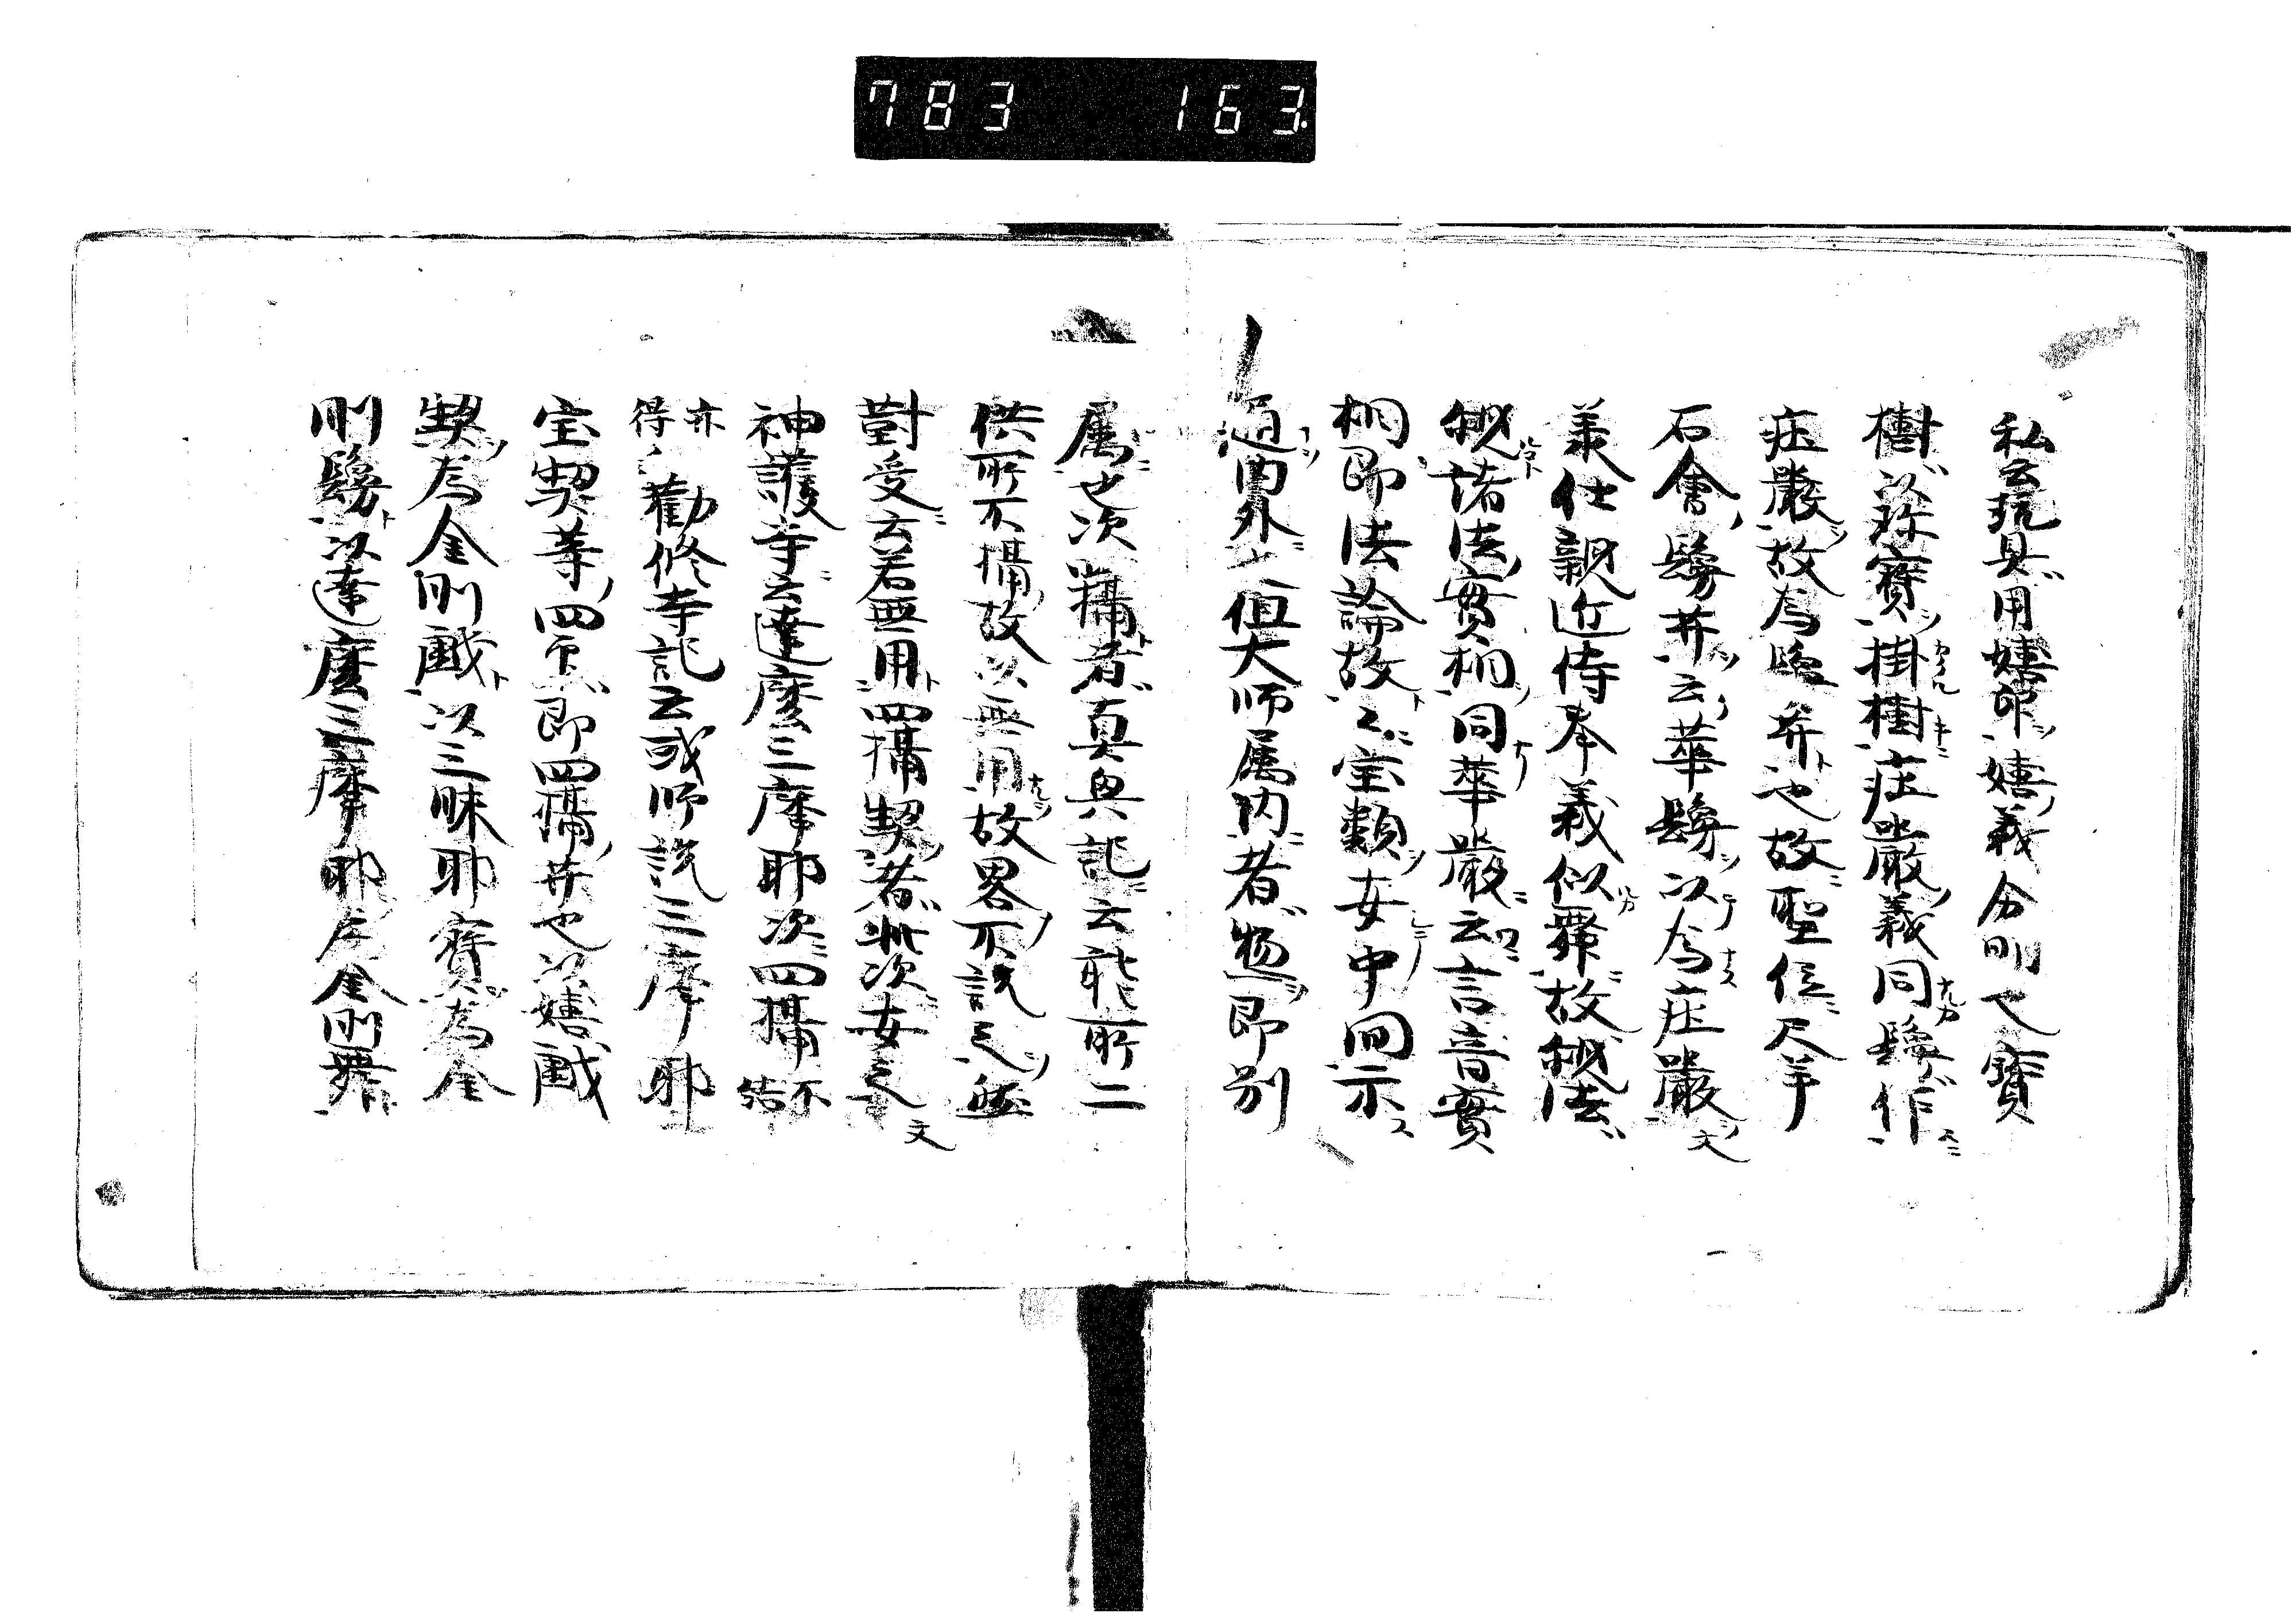 783 163
私云玩具用嬉印嬉義分明也寳
樹以寳掛樹庄嚴義同鬘作
庄嚴故為鬘并也故聖位尺羊
石會鬘并云華鬘以為庄嚴文
承仕親近侍奉義似舞故秘法
秘諸法實相同華嚴云言音實
相即法論故〻宝類女中同示
通内外但大师属内者惣即別
属也次攝者真興記云能所二
供所不攝故以無用故畧不說之
對受云若無用四攝契者此次安之文
神護寺云達磨三摩耶次四攝不結
亦得勸修寺記云或师說三摩耶
宝契等四印即四攝并也以嬉戯
契為金剛戯以三昧耶寳為金
剛鬘以達磨三摩耶為金剛舞